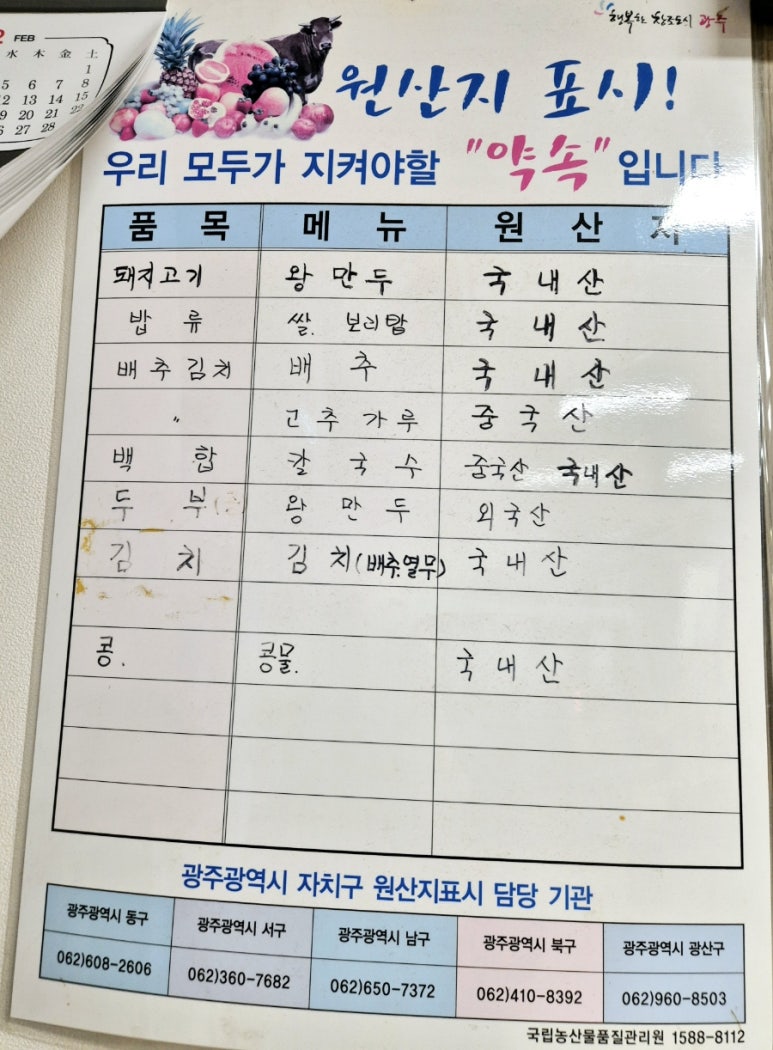 2 FEB
水 木 金 土
1
5 6 7 8
12 13 14 15
19 20 21 22
26 27 28
행복한 창조도시 광주
원산지 표시!
우리 모두가 지켜야할 "약속"입니다
품 목 메 뉴 원 산 지
돼지고기 왕만두 국내산
밥 류 쌀. 보리밥 국내산
배추김치 배 추 국내산
〃 고추가루 중국산
백 합 칼국수 중국산 국내산
두 부 왕만두 외국산
김 치 김치(배추.열무) 국내산
콩. 콩물. 국내산
광주광역시 자치구 원산지표시 담당 기관
광주광역시 동구 광주광역시 서구 광주광역시 남구 광주광역시 북구 광주광역시 광산구
062)608-2606 062)360-7682 062)650-7372 062)410-8392 062)960-8503
국립농산물품질관리원 1588-8112